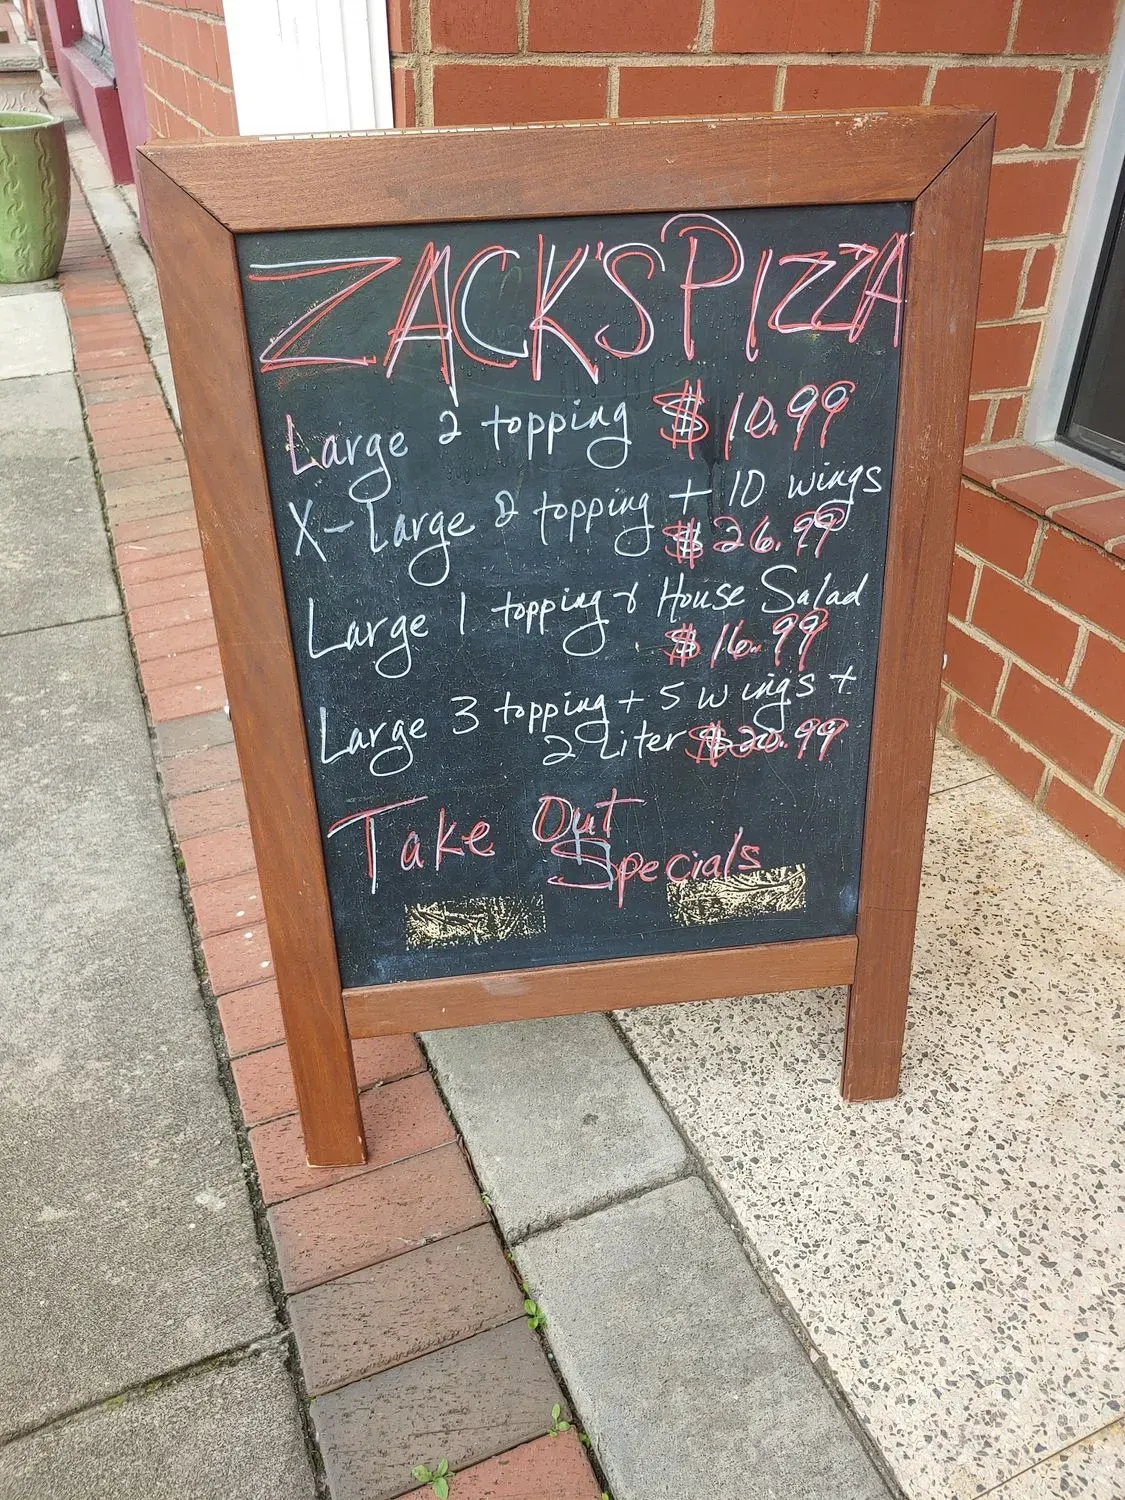 ZACK'S PIZZA
Large 2 topping $10.99
X-Large 2 topping + 10 wings
$26.99
Large 1 topping & House Salad
$16.99
Large 3 topping + 5 wings +
2 Liter $20.99
Take Out
Specials